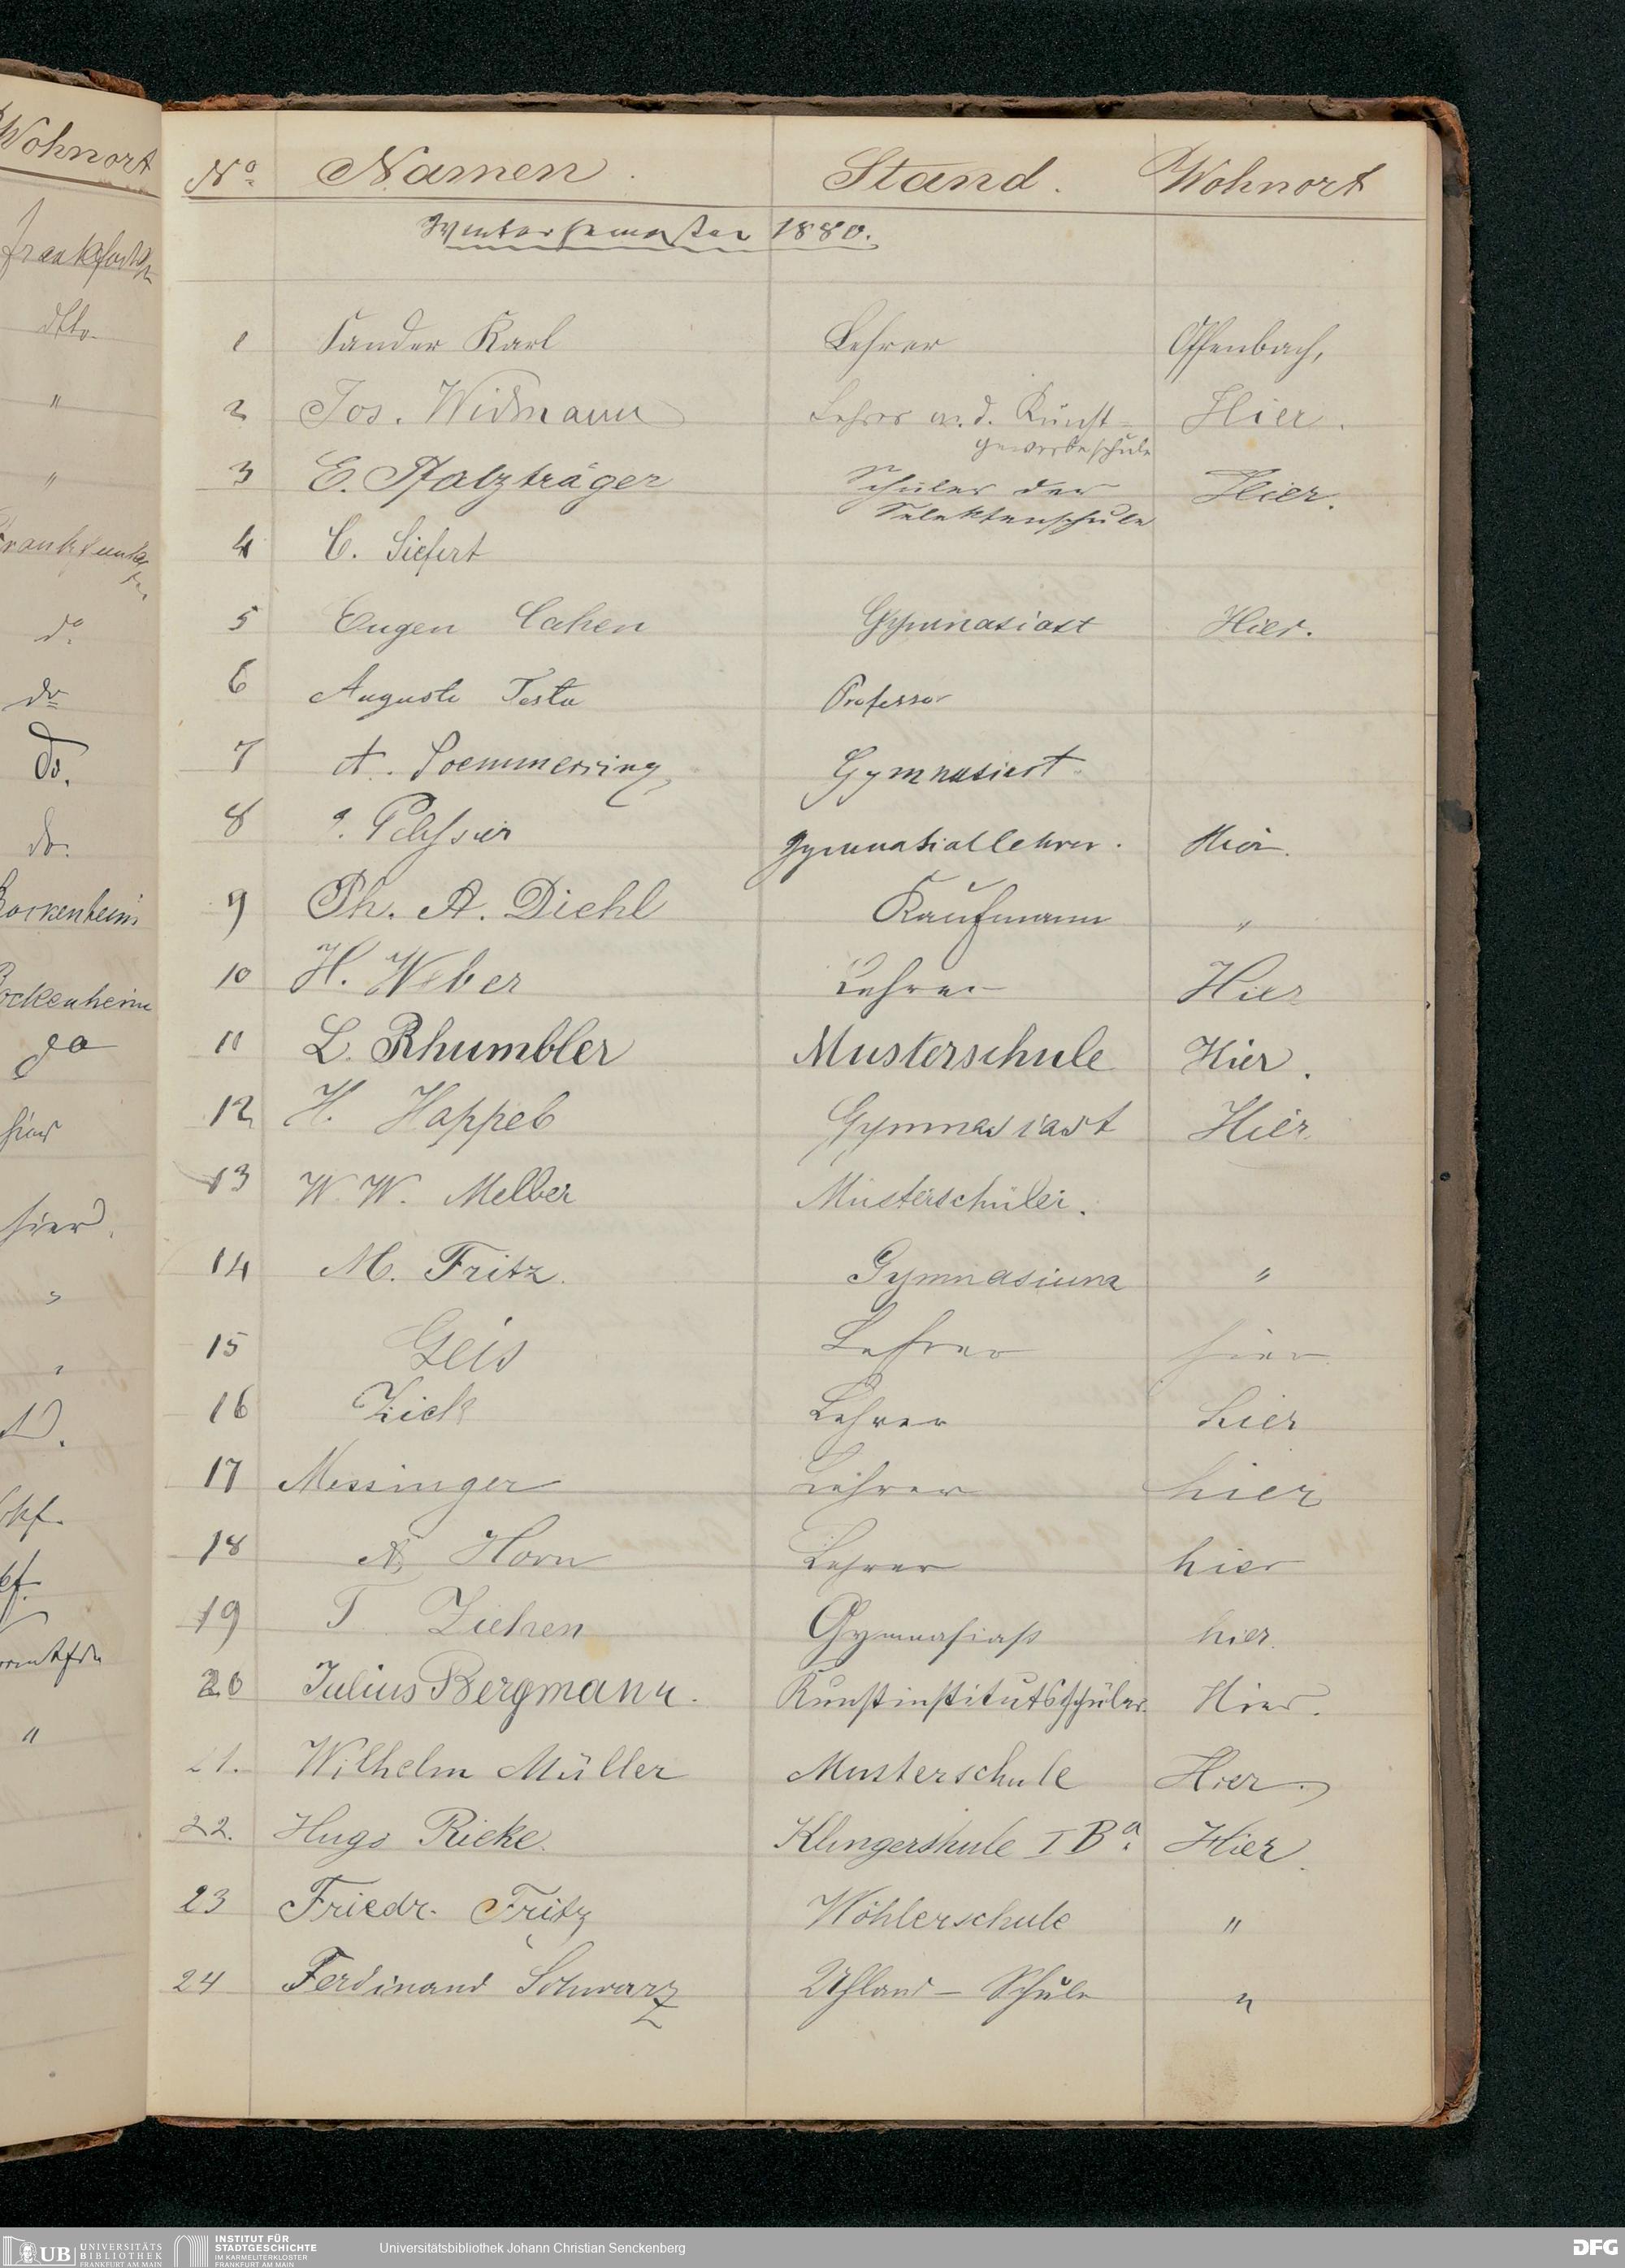 Wohnort
Frankfurt
dto.
"
"
do
do
do.
do.
Bockenheim
Bockenheim
hier
hier.
"
"
No. Namen. Stand. Wohnort
Wintersemester 1880.
1 Sander Karl Lehrer Offenbach,
2 Jos. Widmann Lehrer a. d. Kunst- Hier.
gewerbeschule
3 E. Pfalzträger Schüler der Hier.
Selektenschule
4 C. Siefert
5 Eugen Cahen Gymnasiast Hier.
6 Auguste Testu Professor
7 A. Soemmerring Gymnasiast.
8 Pelissier Gymnasiallehrer. Hier.
9 Ph. A. Diehl Kaufmann "
10 H. Weber Lehrer Hier
11 L. Rhumbler Musterschule Hier.
12 H. Happel Gymnasiast Hier
13 W. W. Melber Musterschüler.
14 M. Fritz. Gymnasium "
15 Geis Lehrer hier
16 Zick Lehrer hier
17 Messinger Lehrer hier
18 A. Horn Lehrer hier
19 T. Ziehen Gymnasiast hier.
20 Julius Bergmann. Kunstinstitutsschüler. Hier.
21. Wilhelm Müller Musterschule Hier.
22. Hugo Ricke. Klingerschule I Ba. Hier.
23 Friedr. Fritz Wöhlerschule "
24 Ferdinand Schwarz Uhland-Schule "
UB UNIVERSITÄTS
BIBLIOTHEK
FRANKFURT AM MAIN
INSTITUT FÜR
STADTGESCHICHTE
IM KARMELITERKLOSTER
FRANKFURT AM MAIN
Universitätsbibliothek Johann Christian Senckenberg
DFG